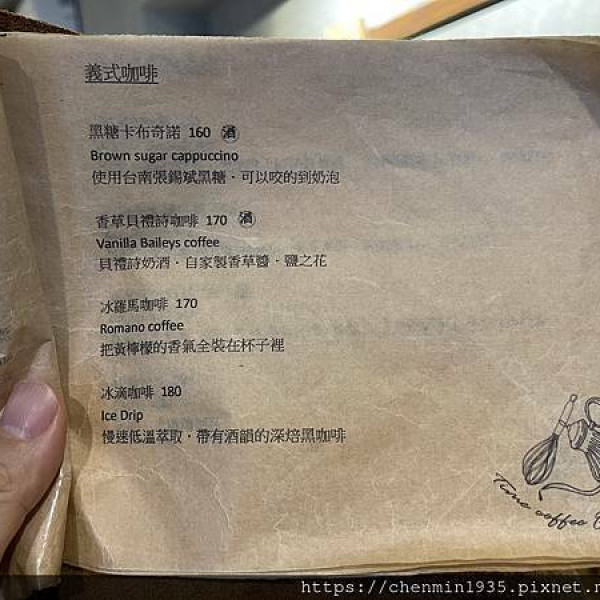 義式咖啡
黑糖卡布奇諾 160 酒
Brown sugar cappuccino
使用台南張錫斌黑糖．可以咬的到奶泡
香草貝禮詩咖啡 170 酒
Vanilla Baileys coffee
貝禮詩奶酒．自家製香草醬．鹽之花
冰羅馬咖啡 170
Romano coffee
把黃檸檬的香氣全裝在杯子裡
冰滴咖啡 180
Ice Drip
慢速低溫萃取．帶有酒韻的深焙黑咖啡
Time coffee
https://chenmin1935.pixnet.n